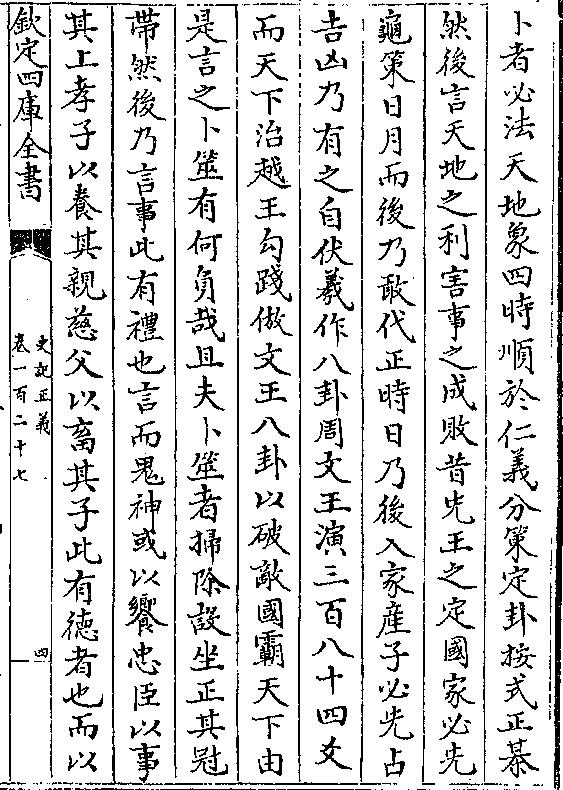 卜者必法天地象四時順於仁義分策定卦按式正棊
然後言天地之利害事之成敗昔先王之定國家必先
龜策日月而後乃敢代正時日乃後入家產子必先占
吉凶乃有之自伏羲作八卦周文王演三百八十四爻
而天下治越王勾踐倣文王八卦以破敵國霸天下由
是言之卜筮有何負哉且夫卜筮者掃除設坐正其冠
帶然後乃言事此有禮也言而鬼神或以饗忠臣以事
其上孝子以養其親慈父以畜其子此有德者也而以
欽定四庫全書
史記正義
卷一百二十七
四